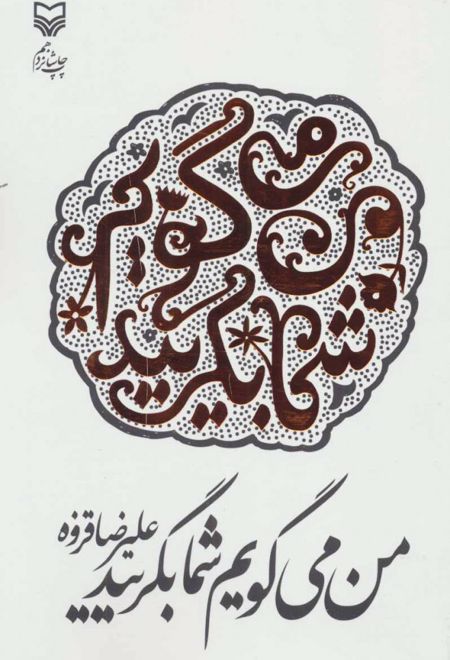 چاپ شانزدهم
من می گویم
شما بگریید
علیرضا قزوه
من می گویم شما بگریید